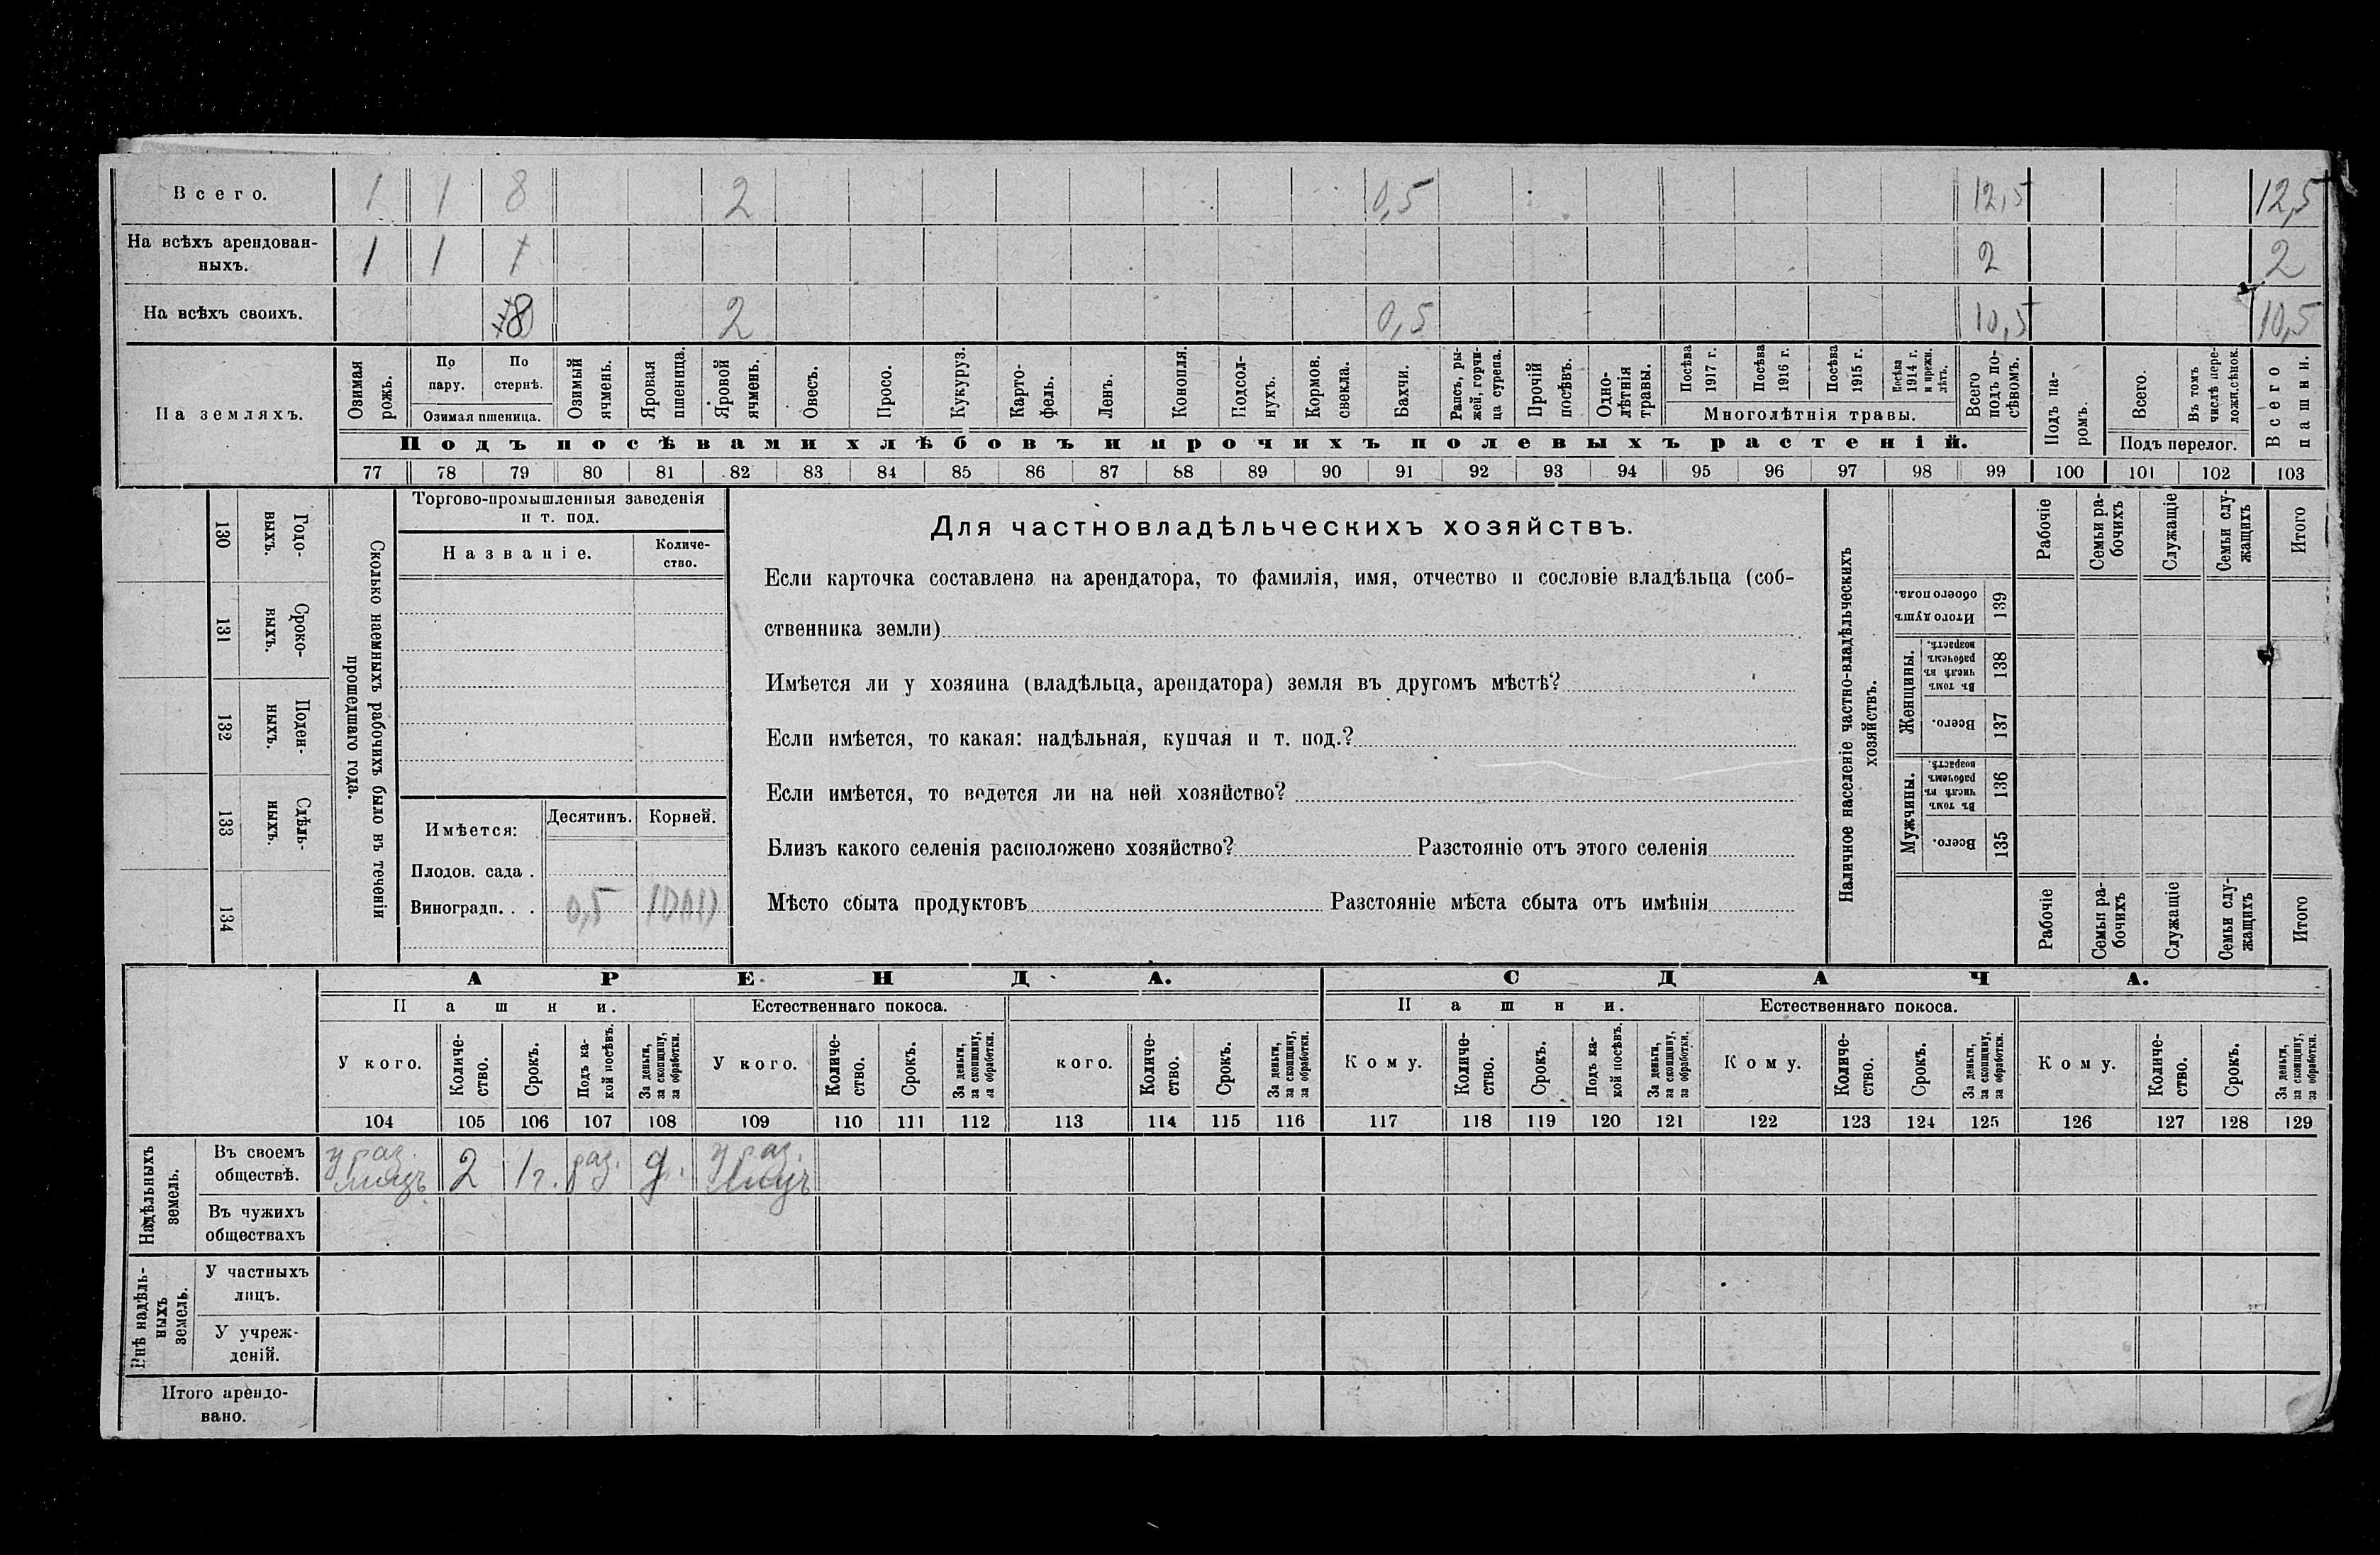 Всего. 1 1 8 2 0,5 12,5 12,5
На всѣхъ арендован-
ныхъ. 1 1 2 2
На всѣхъ своихъ. 8 2 0,5 10,5 10,5
На земляхъ.
Озимая рожь.
По пару.
По стернѣ.
Озимая пшеница.
Озимый ячмень.
Яровая пшеница.
Яровой ячмень.
Овесъ.
Просо.
Кукуруз.
Карто-
фель.
Ленъ.
Конопля.
Подсол-
нухъ.
Кормов. свекла.
Бахчи.
Рапсъ, ры-
жей, горчи-
ца сурепа.
Прочій посѣвъ.
Одно-
лѣтнія травы.
Посѣва 1917 г.
Посѣва 1916 г.
Посѣва 1915 г.
Посѣва 1914 г. и прежн. лѣтъ.
Многолѣтнія травы.
Всего подъ по-
сѣвомъ.
Подъ па-
ромъ.
Всего.
Въ томъ числѣ пере-
ложн.сѣнок.
Подъ перелог.
Всего пашни.
Подъ посѣвами хлѣбовъ и прочихъ полевыхъ растеній.
77 78 79 80 81 82 83 84 85 86 87 88 89 90 91 92 93 94 95 96 97 98 99 100 101 102 103
Сколько наемныхъ рабочихъ было въ теченіи
прошедшаго года.
Годо-
выхъ.
130
Сроко-
ныхъ.
131
Поден-
ныхъ.
132
Сдѣль-
ныхъ.
133
134
Торгово-промышленныя заведенія
и т. под.
Названіе.
Количе-
ство.
Имѣется:
Десятинъ.
Корней.
Плодов. сада .
Виноградн. . . 0,5
Для частновладѣльческихъ хозяйствъ.
Если карточка составлена на арендатора, то фамилія, имя, отчество и сословіе владѣльца (соб-
ственника земли)
Имѣется ли у хозяина (владѣльца, арендатора) земля въ другомъ мѣстѣ?
Если имѣется, то какая: надѣльная, купчая и т. под.?
Если имѣется, то ведется ли на ней хозяйство?
Близъ какого селенія расположено хозяйство? Разстояніе отъ этого селенія
Мѣсто сбыта продуктовъ Разстояніе мѣста сбыта отъ имѣнія
Наличное населеніе частно-владѣльческихъ
хозяйствъ.
Рабочіе
Семьи ра-
бочихъ
Служащіе
Семьи слу-
жащихъ
Итого
Итого душъ обоего пола.
139
Женщины.
Въ томъ числѣ въ рабочемъ возрастѣ.
138
Всего.
137
Мужчины.
Въ томъ числѣ въ рабочемъ возрастѣ.
136
Всего.
135
Рабочіе
Семьи ра-
бочихъ
Служащіе
Семьи слу-
жащихъ
Итого
АРЕНДА. СДАЧА.
Пашни. Естественнаго покоса. Пашни. Естественнаго покоса.
У кого.
Количе-
ство.
Срокъ.
Подъ ка-
кой посѣвъ.
За деньги,
за скопщину,
за обработки.
У кого.
Количе-
ство.
Срокъ.
За деньги,
за скопщину,
за обработки.
кого.
Количе-
ство.
Срокъ.
За деньги,
за скопщину,
за обработки.
Кому.
Количе-
ство.
Срокъ.
Подъ ка-
кой посѣвъ.
За деньги,
за скопщину,
за обработки.
Кому.
Количе-
ство.
Срокъ.
За деньги,
за скопщину,
за обработки.
Кому.
Количе-
ство.
Срокъ.
За деньги,
за скопщину,
за обработки.
104 105 106 107 108 109 110 111 112 113 114 115 116 117 118 119 120 121 122 123 124 125 126 127 128 129
Надѣльныхъ
земель.
Въ своемъ
обществѣ.
у раз.
лицъ 2 1г. раз. д. у раз.
лицъ
Въ чужихъ
обществахъ
Внѣ надѣль-
ныхъ
земель.
У частныхъ
лицъ.
У учреж-
деній.
Итого арендо-
вано.